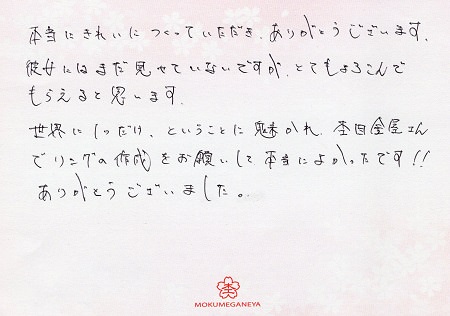 本当にきれいにつくっていただき、ありがとうございます。
彼女にはまだ見せていないですが、とてもよろこんで
もらえると思います。
世界に1つだけ、ということに魅かれ、杢目金屋さん
でリングの作成をお願いして本当によかったです!!
ありがとうございました。
MOKUMEGANEYA